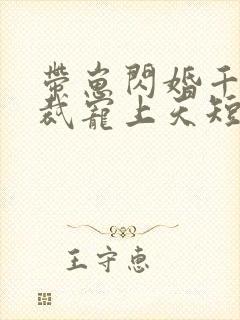 带崽闪婚千
裁寵上天短
王守惠